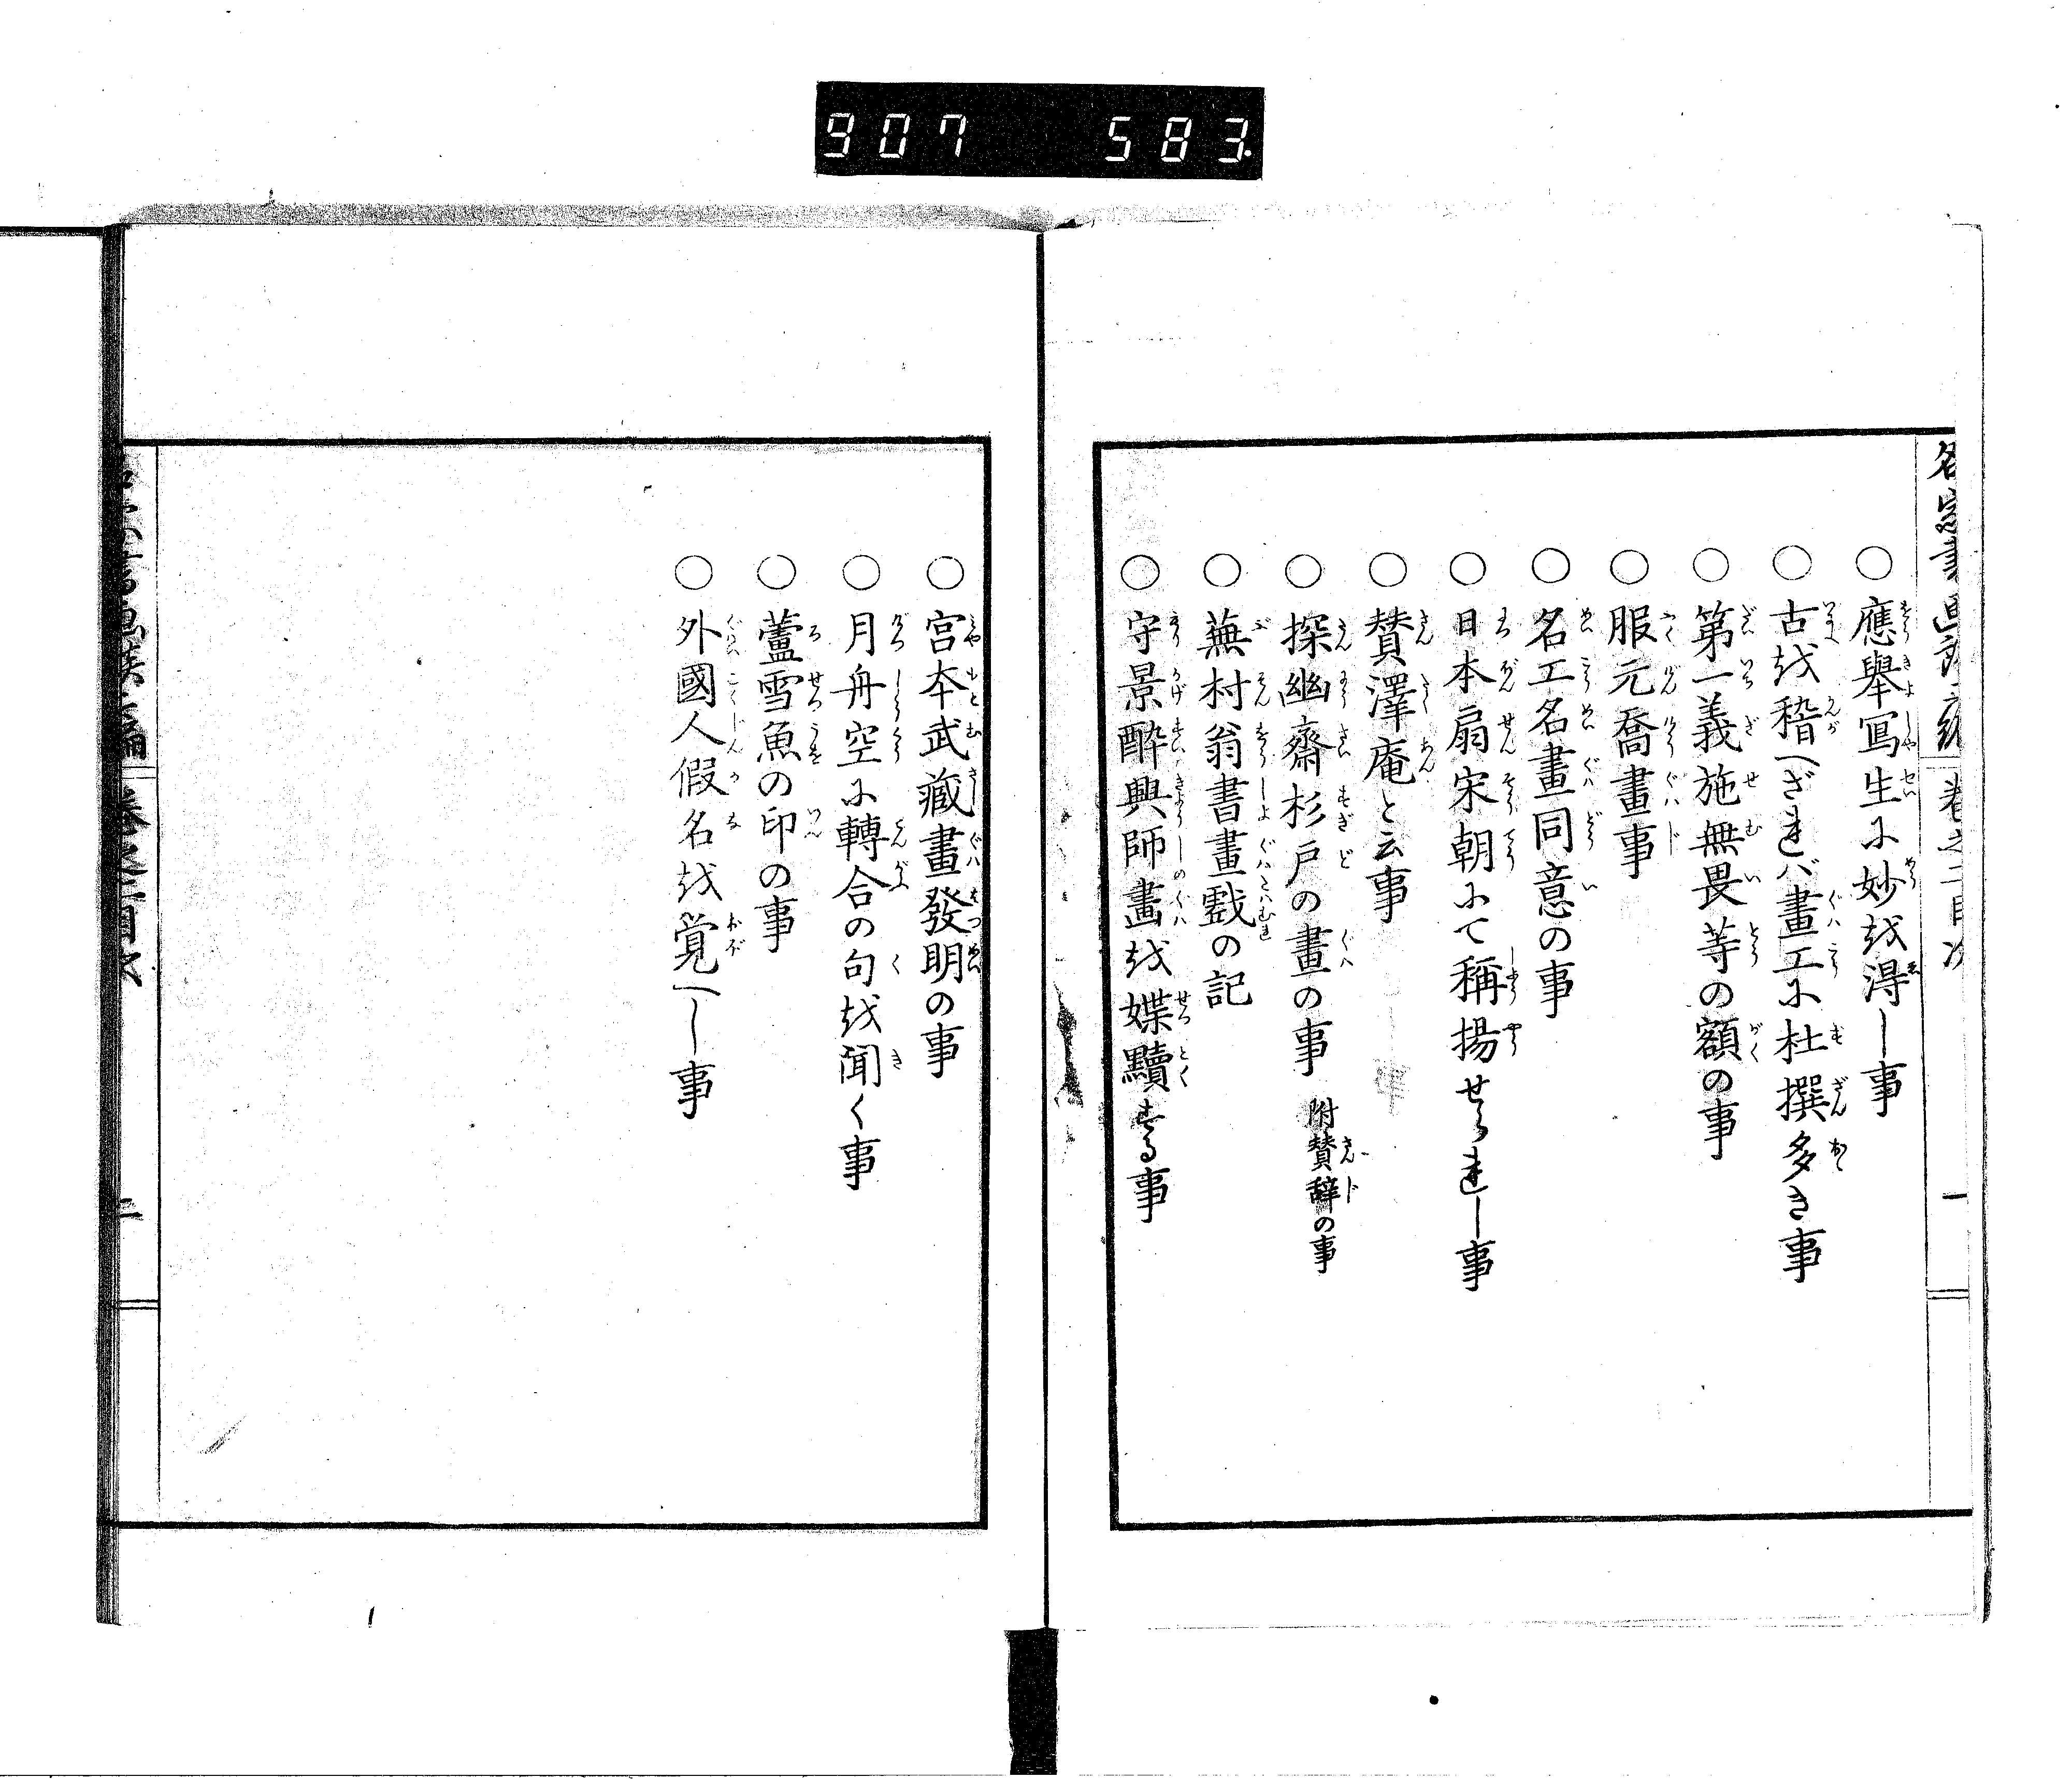 907 583
名家書畫談二編 卷之二目次 一
○應舉寫生に妙を得し事
○古を稽へざれバ畫工に杜撰多き事
○第一義施無畏等の額の事
○服元喬畫事
○名工名畫同意の事
○日本扇宋朝にて稱揚せられし事
○賛澤庵と云事
○探幽齋杉戸の畫の事 附賛辞の事
○蕪村翁書畫戲の記
○守景酔興師畫を媟黷する事
○宮本武藏畫發明の事
○月舟空に轉合の句を聞く事
○蘆雪魚の印の事
○外國人假名を覚へし事
二